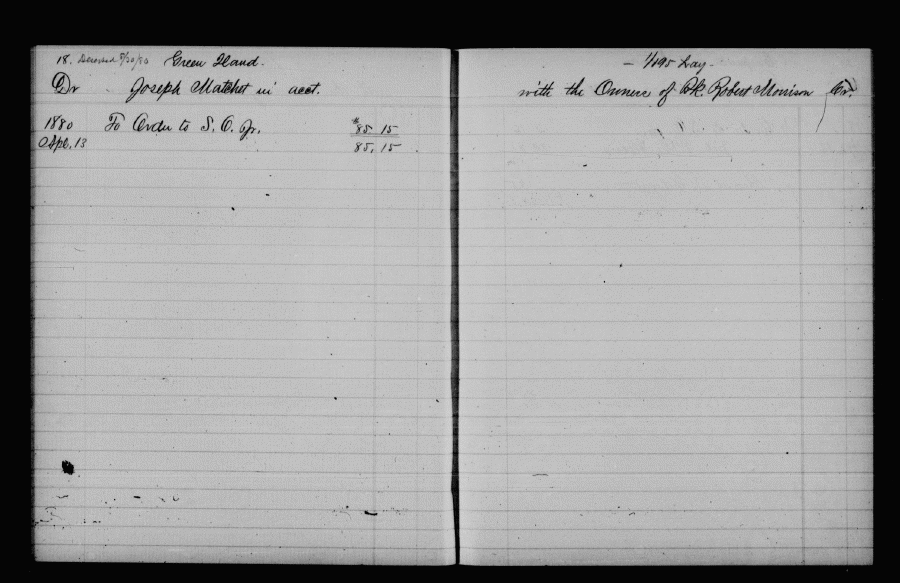 18. Deserted 5/30/80 Green Hand.
Dr Joseph Matchet in acct.
1880 To Order to S. O. Jr. $85 15
Apl. 13 85.15
- 1/195 Lay -
with the Owners of Bk. Robert Morrison Cr.